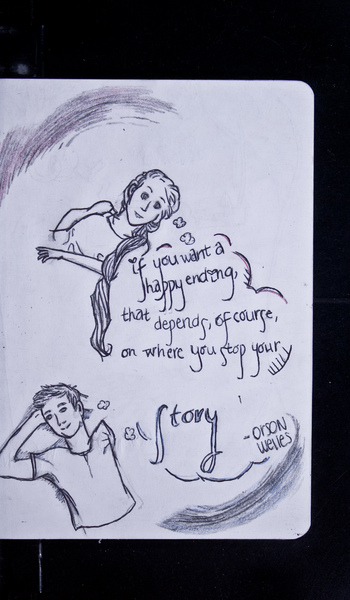 if you want a
happy ending,
that depends, of course,
on where you stop your
story
-ORSON
Welles